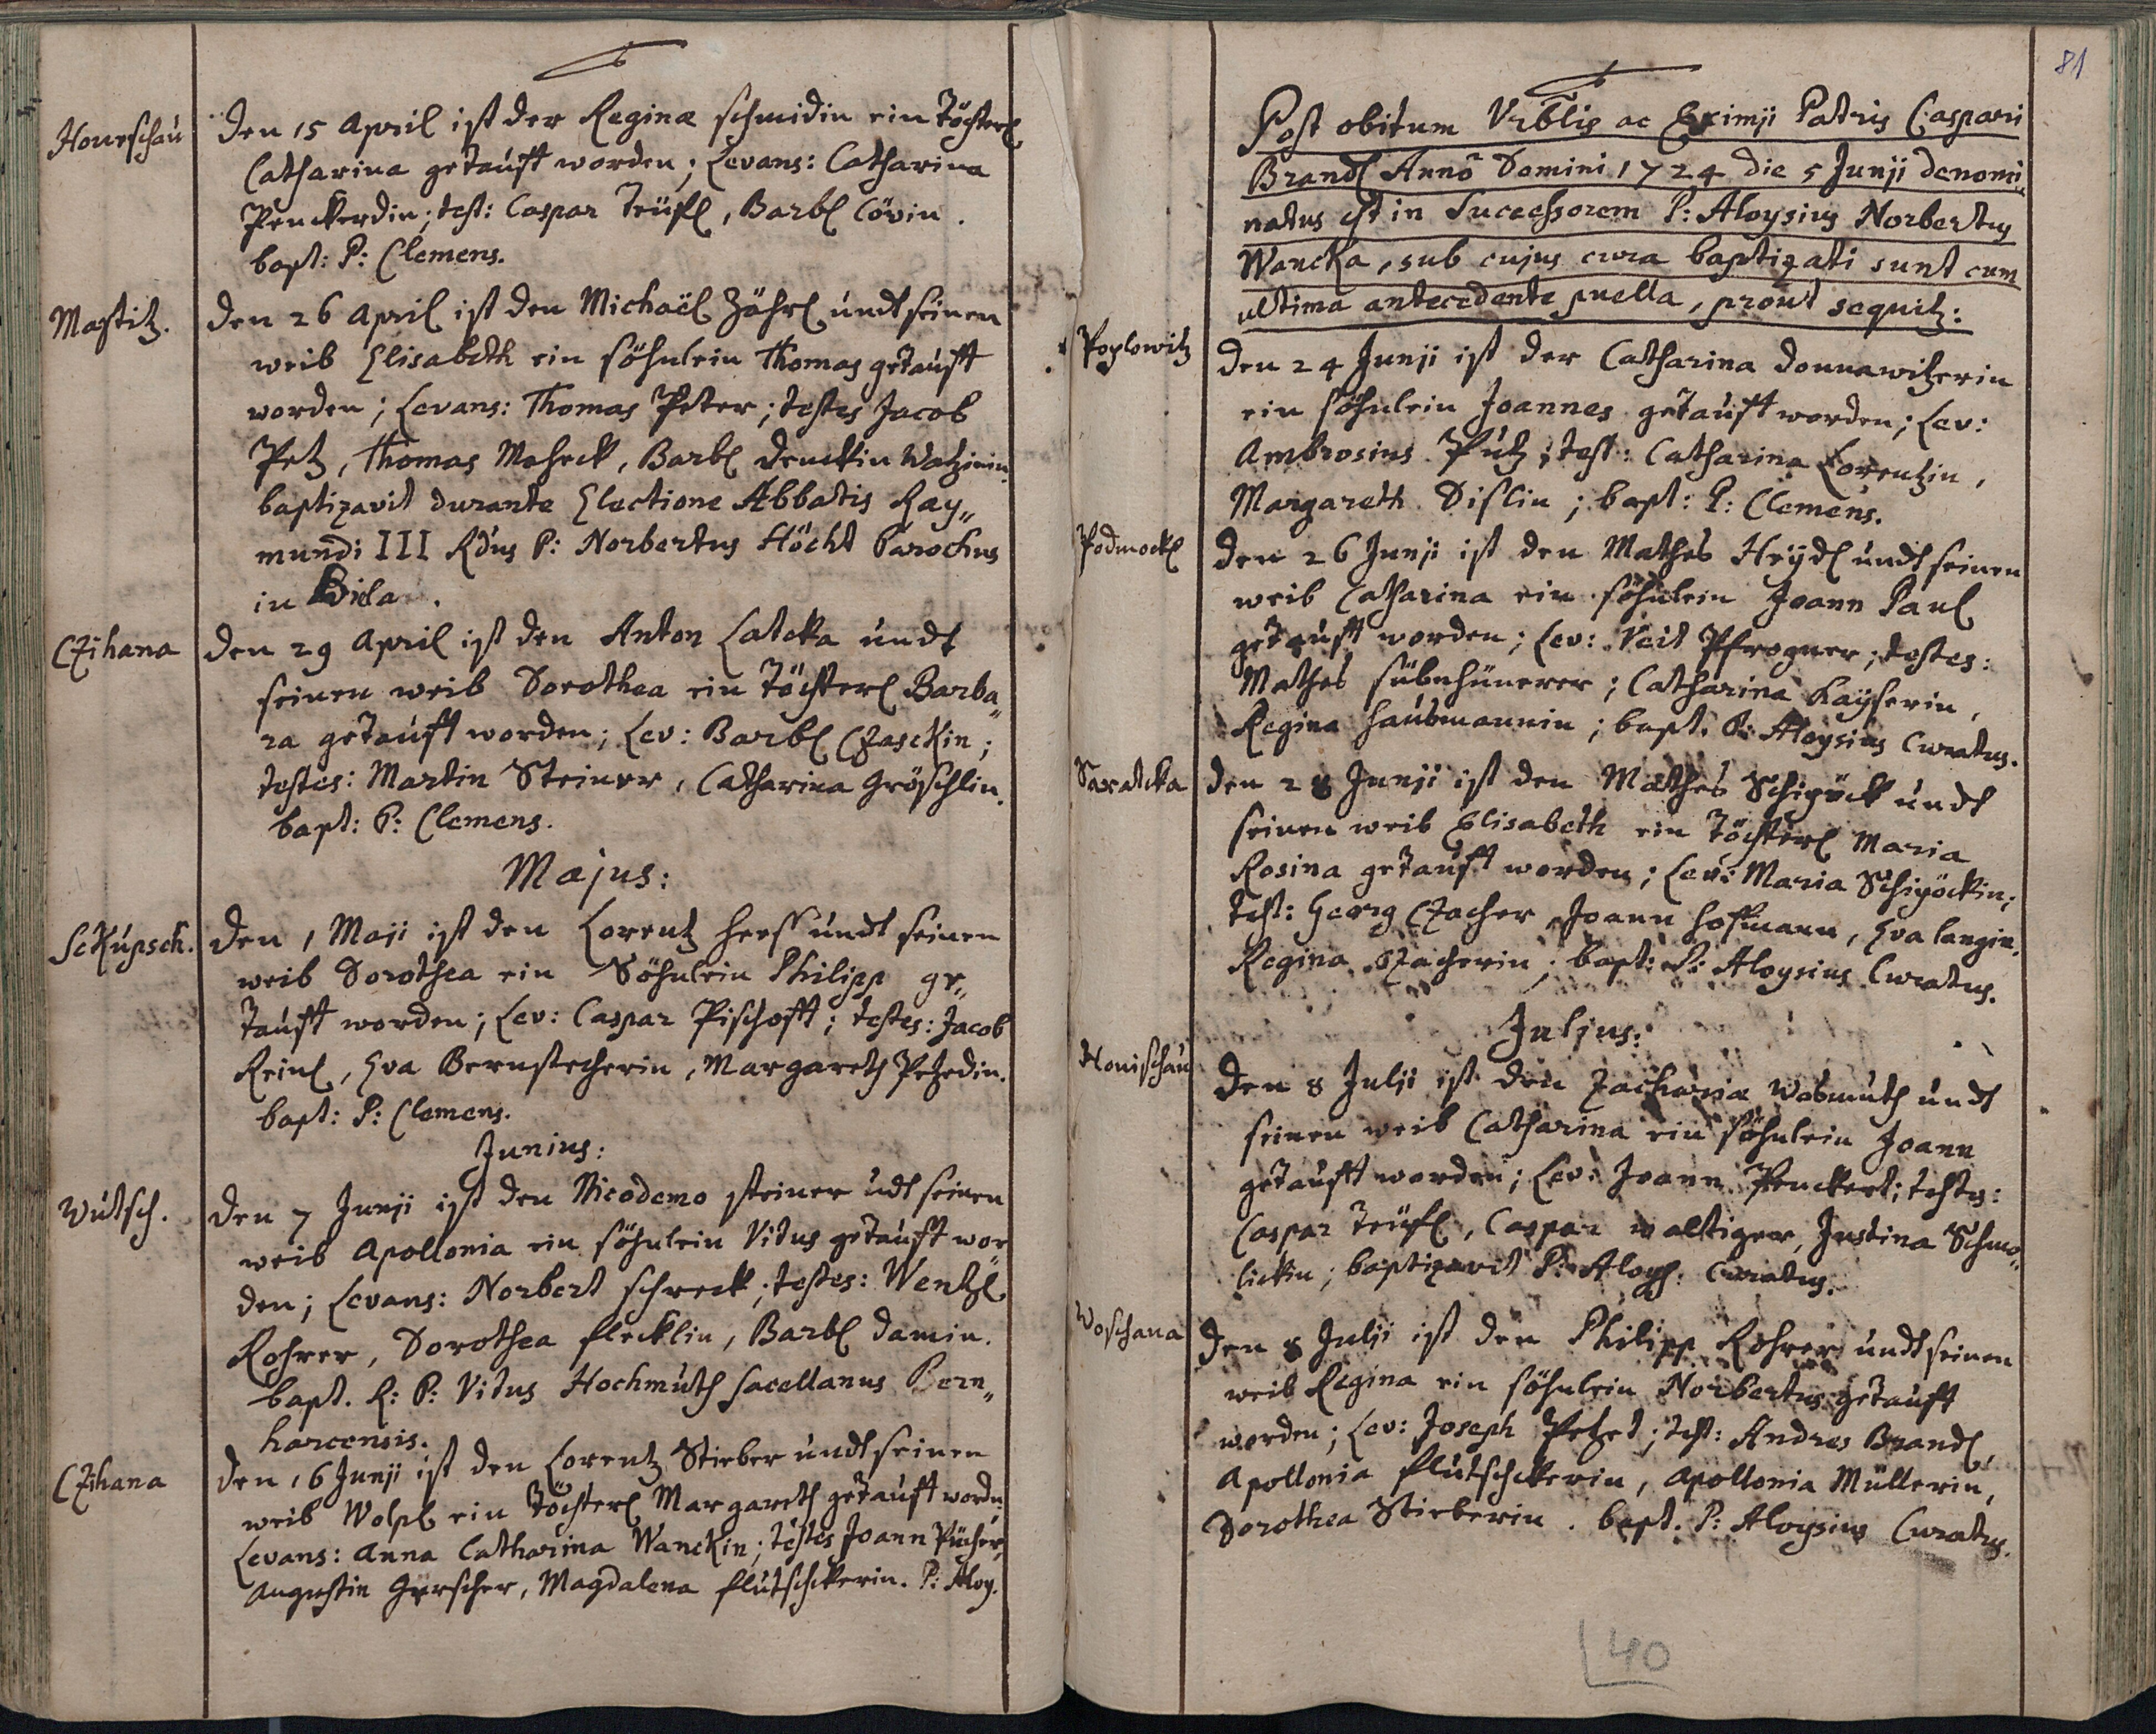 Honeschau
Den 15 April ist der Reginæ schmidin ein Töchterl
Catharina getaufft worden; Levans: Catharina
Penckerdin; test: Caspar Teüfl, Barbl Cövin.
bapt: P: Clemens.
Mastitz.
Den 26 April ist den Michaël Zährl undt seinen
weib Elisabeth ein söhnlein Thomas getaufft
worden; Levans: Thomas Peter; testes Jacob
Petz, Thomas Maheck, Barbl Denckin Watzinin.
baptizavit durante Electione Abbatis Ray„
mundi III Rdus P: Norbertus Höcht Parochus
in Biela.
CZihana
Den 29 April ist den Anton Latcka undt
seinen weib Dorothea ein Töchterl Barba„
ra getaufft worden; Lev: Barbl CZasckin;
testes: Martin Steiner, Catharina Gröschlin.
bapt: P: Clemens.
Majus:
Sckupsch.
Den 1 Maji ist den Lorentz Hess undt seinen
weib Dorothea ein Söhnlein Philipp ge„
taufft worden; Lev: Caspar Pischofft; testes: Jacob
Reinl, Eva Bernstecherin, Margareth Petzedin.
bapt: P: Clemens.
Junius:
Wutsch.
Den 7 Junji ist den Nicodemo steiner udt seinen
weib Apollonia ein söhnlein Vitus getaufft wor„
den; Levans: Norbert schreck; testes: Wentzl
Rohrer, Dorothea flecklin, Barbl Damin.
bapt. R: P: Vitus Hochmuth sacellanus Bern„
harcensis.
CZihana
Den 16 Junji ist den Lorentz Stieber undt seinen
weib Wolpl ein Töchterl Margareth getaufft wordn
Levans: Anna Catharina Wanckin; testes Joann Pücher,
Augustin Gerscher, Magdalena flutschckerin. P: Aloy.
81
Post obitum Vrblis ac Eximji Patris Caspari
Brandl Anno Domini 1724 die 5 Junji denomi„
natus est in Sucessorem P: Aloysius Norbertus
Wancka, sub cujus cura baptizati sunt cum
ultima antecedente puella, prout sequitz:
Poplowitz
Den 24 Junji ist der Catharina Donnawitzerin
ein söhnlein Joannes getaufft worden; Lev:
Ambrosius Putz; test: Catharina Lorentzin,
Margareth Dislin; bapt: P: Clemens.
Podmockl
Den 26 Junji ist den Mathes Heydl undt seinen
weib Catharina ein söhnlein Joann Paul
getaufft worden; Lev: Veit Pfrogner; testes:
Mathes sübnhünerer; Catharina Kayserin,
Regina Hausmannin; bapt. P: Aloysius Curatus.
Saratcka
Den 28 Junji ist den Mathes Schigöck undt
seinen weib Elisabeth ein Töchterl Maria
Rosina getaufft worden; Lev: Maria Schigöckin;
test: Georg CZacher, Joann Hofmann, Eva langin,
Regina CZacherin; bapt: P: Aloysius Curatus.
Juljus:
Honischau
Den 8 Julji ist den Zacharia Wobmuth undt
seinen weib Catharina ein söhnlein Joann
getaufft worden; Lev: Joann Penckert; testes:
Caspar Teüfl, Caspar waltiger, Justina Schmo„
lickin; baptizavit P: Aloys: Curatus.
Woschana
Den 8 Julji ist den Philipp Rohrer undt seinen
weib Regina ein söhnlein Norbertus getaufft
worden; Lev: Joseph Petzet; test: Andres Brandl,
Apollonia flutschckerin, Apollonia Müllerin,
Dorothea Stieberin. bapt. P: Aloysius Curatus.
40